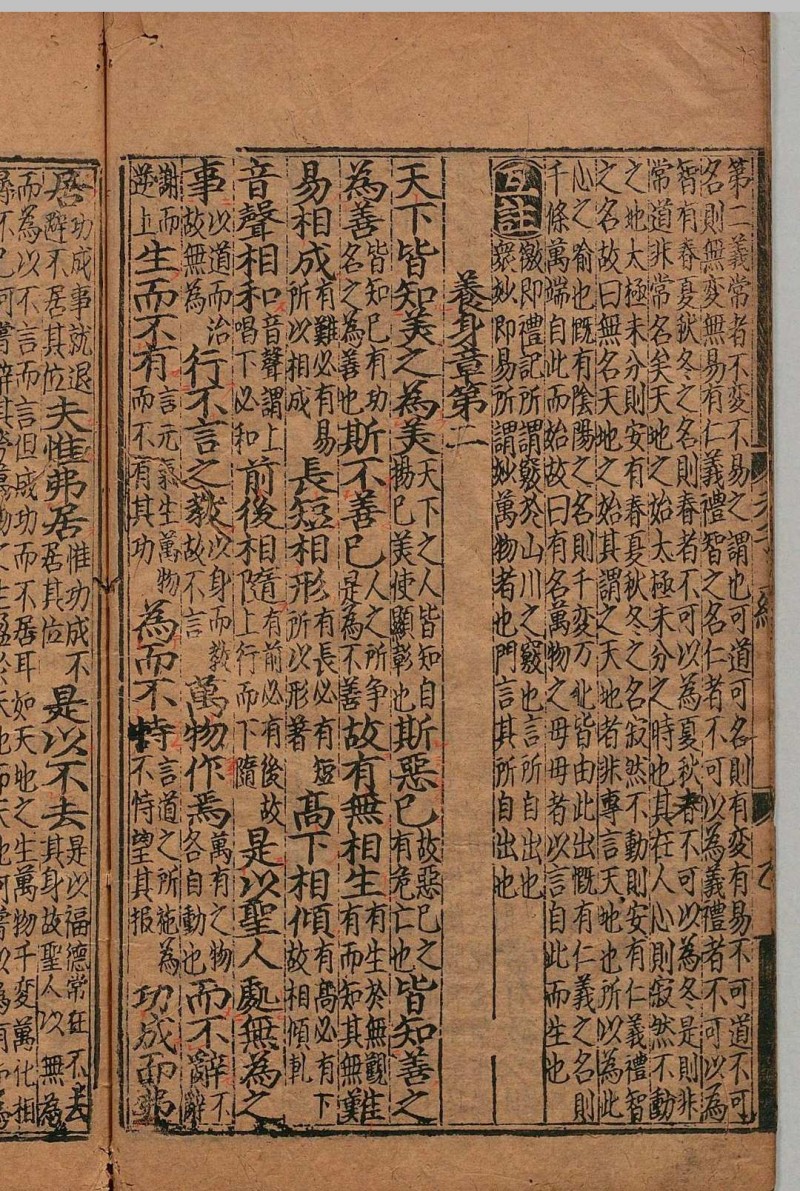 第二義常者不變不易之謂也可道可名則有変有易不可道不可
名則無変無易有仁義禮智之名仁者不可以為義禮者不可以為
智有春夏秋冬之名則春者不可以為夏秋春不可以為冬是則非
常道非常名矣天地之始太極未分之時也其在人心則寂然不動
之地太極未分則安有春夏秋冬之名寂然不動則安有仁義禮智
之名故曰無名天地之始其謂之天地者非專言天地也所以為此
心之喻也既有陰陽之名則千変万化皆由此出既有仁義之名則
千條萬端自此而始故曰有名萬物之母母者以言自此而生也
互註徼即禮記所謂竅於山川之竅也言所自出也
衆妙即易所謂妙萬物者也門言其所自出也
養身章第二
天下皆知美之為美天下之人皆知自揚己美使顯彰也斯惡已故惡已之有危亡也皆知善之
為善皆知已有功名之為善也斯不善已人之所争是為不善故有無相生有生於無觀有而知其無難
易相成有難必有易所以相成長短相形有長必有短所以形著高下相傾有髙必有下故相傾軋
音聲相和音聲謂上唱下必和前後相隨有前必有後故上行而下隨是以聖人處無為之
事以道而治故無為行不言之教以身而教故不言萬物作焉萬有之物各自動也而不辭不辭
謝而逆上生而不有言元氣生萬物而不有其功為而不恃言道之所施為不恃望其报功成而弗
居功成事就退避不居其位夫惟弗居惟功成不居其位是以不去是以福德常在不去其身故聖人以無為
而為以不言而言但成功而不居耳如天地之生萬物千変萬化相